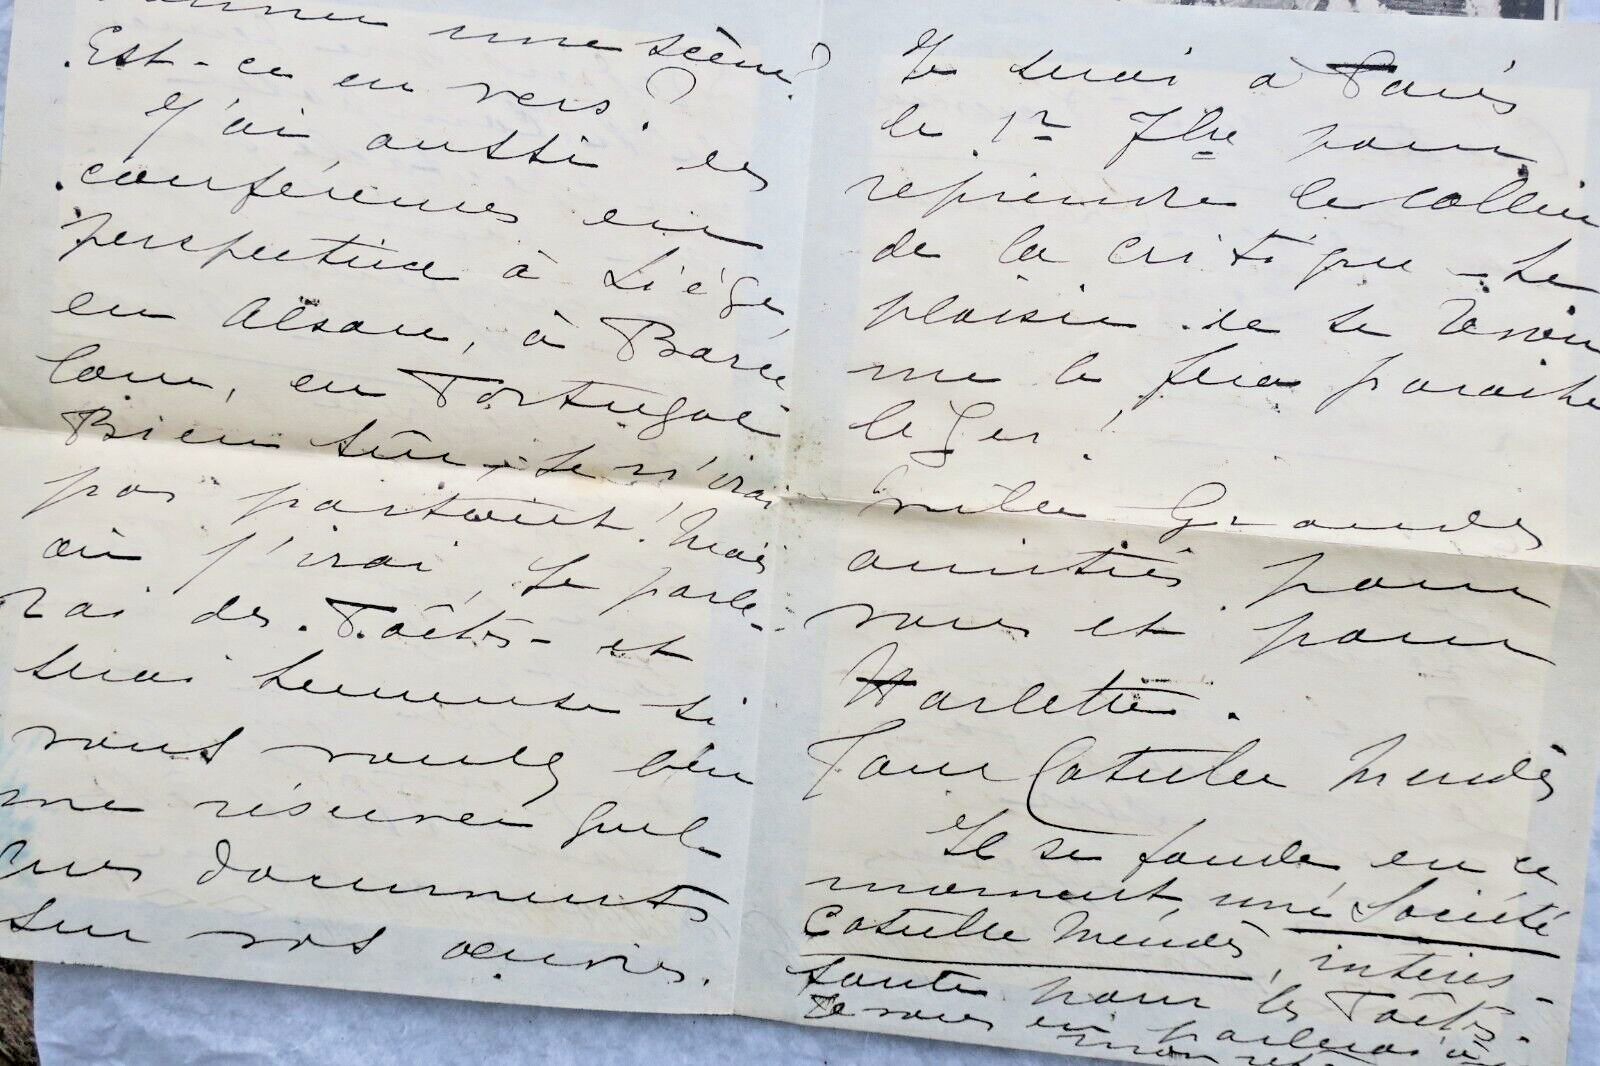 une scène?
Est-ce en vers?
J'ai aussi des
conférences en
perspective à Liège,
en Alsace, à Barce-
lone, en Portugal
Bien sûr, je n'irai
pas partout! Mais
où j'irai, je parle-
rai des Poètes - et
serai heureuse si
vous voulez bien
me réserver quel-
ques documents
sur vos œuvres.
Je serai à Paris
le 1er 7bre pour
reprendre le collier
de la critique - Le
plaisir de se revoir
me le fera paraître
léger!
Mille Grandes
amitiés pour
vous et pour
Harlette.
Jane Catulle Mendès
Il se fonde en ce
moment une Société
Catulle Mendès, intéres-
sante pour les Poètes.
Je vous en parlerai à
mon